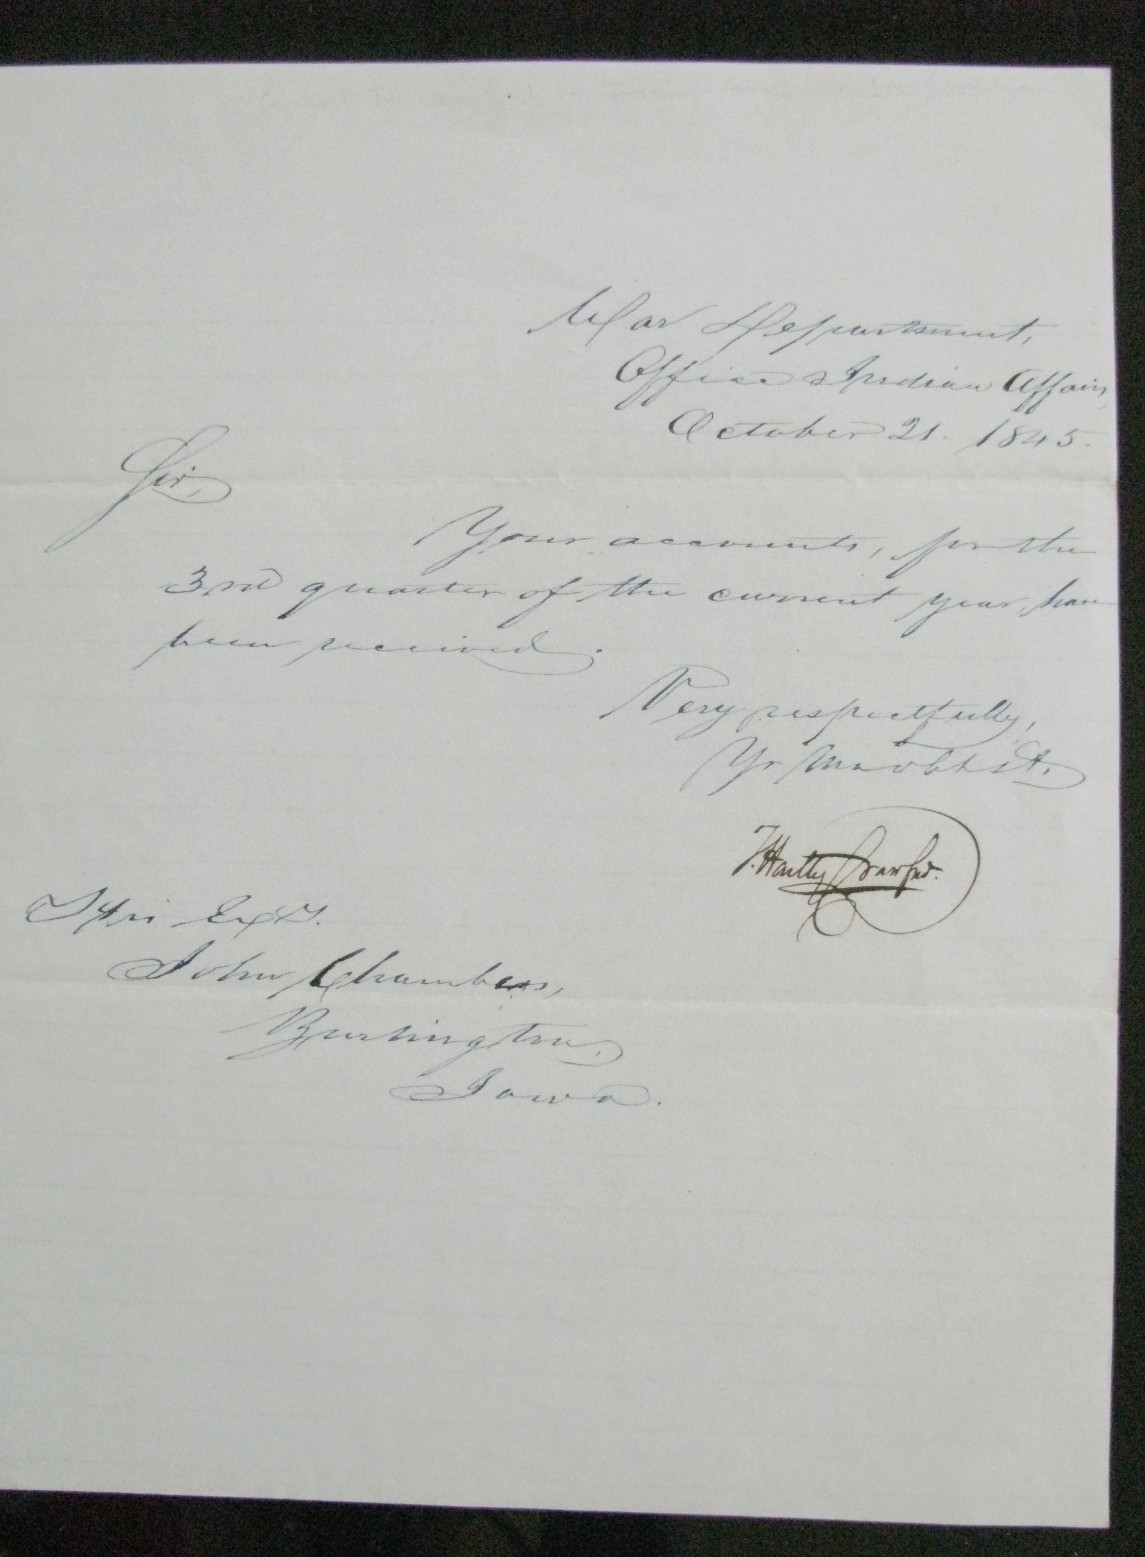 War Department,
Office Indian Affairs,
October 21. 1845.
Sir,
Your accounts, for the
3rd quarter of the current year, have
been received.
Very respectfully,
Yr Mo obt st,
T. Hartley Crawford.
His Exy.
John Chambers,
Burlington,
Iowa.